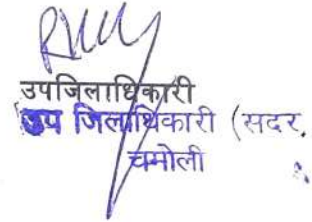 उपजिलाधिकारी
उप जिलाधिकारी (सदर,
चमोली